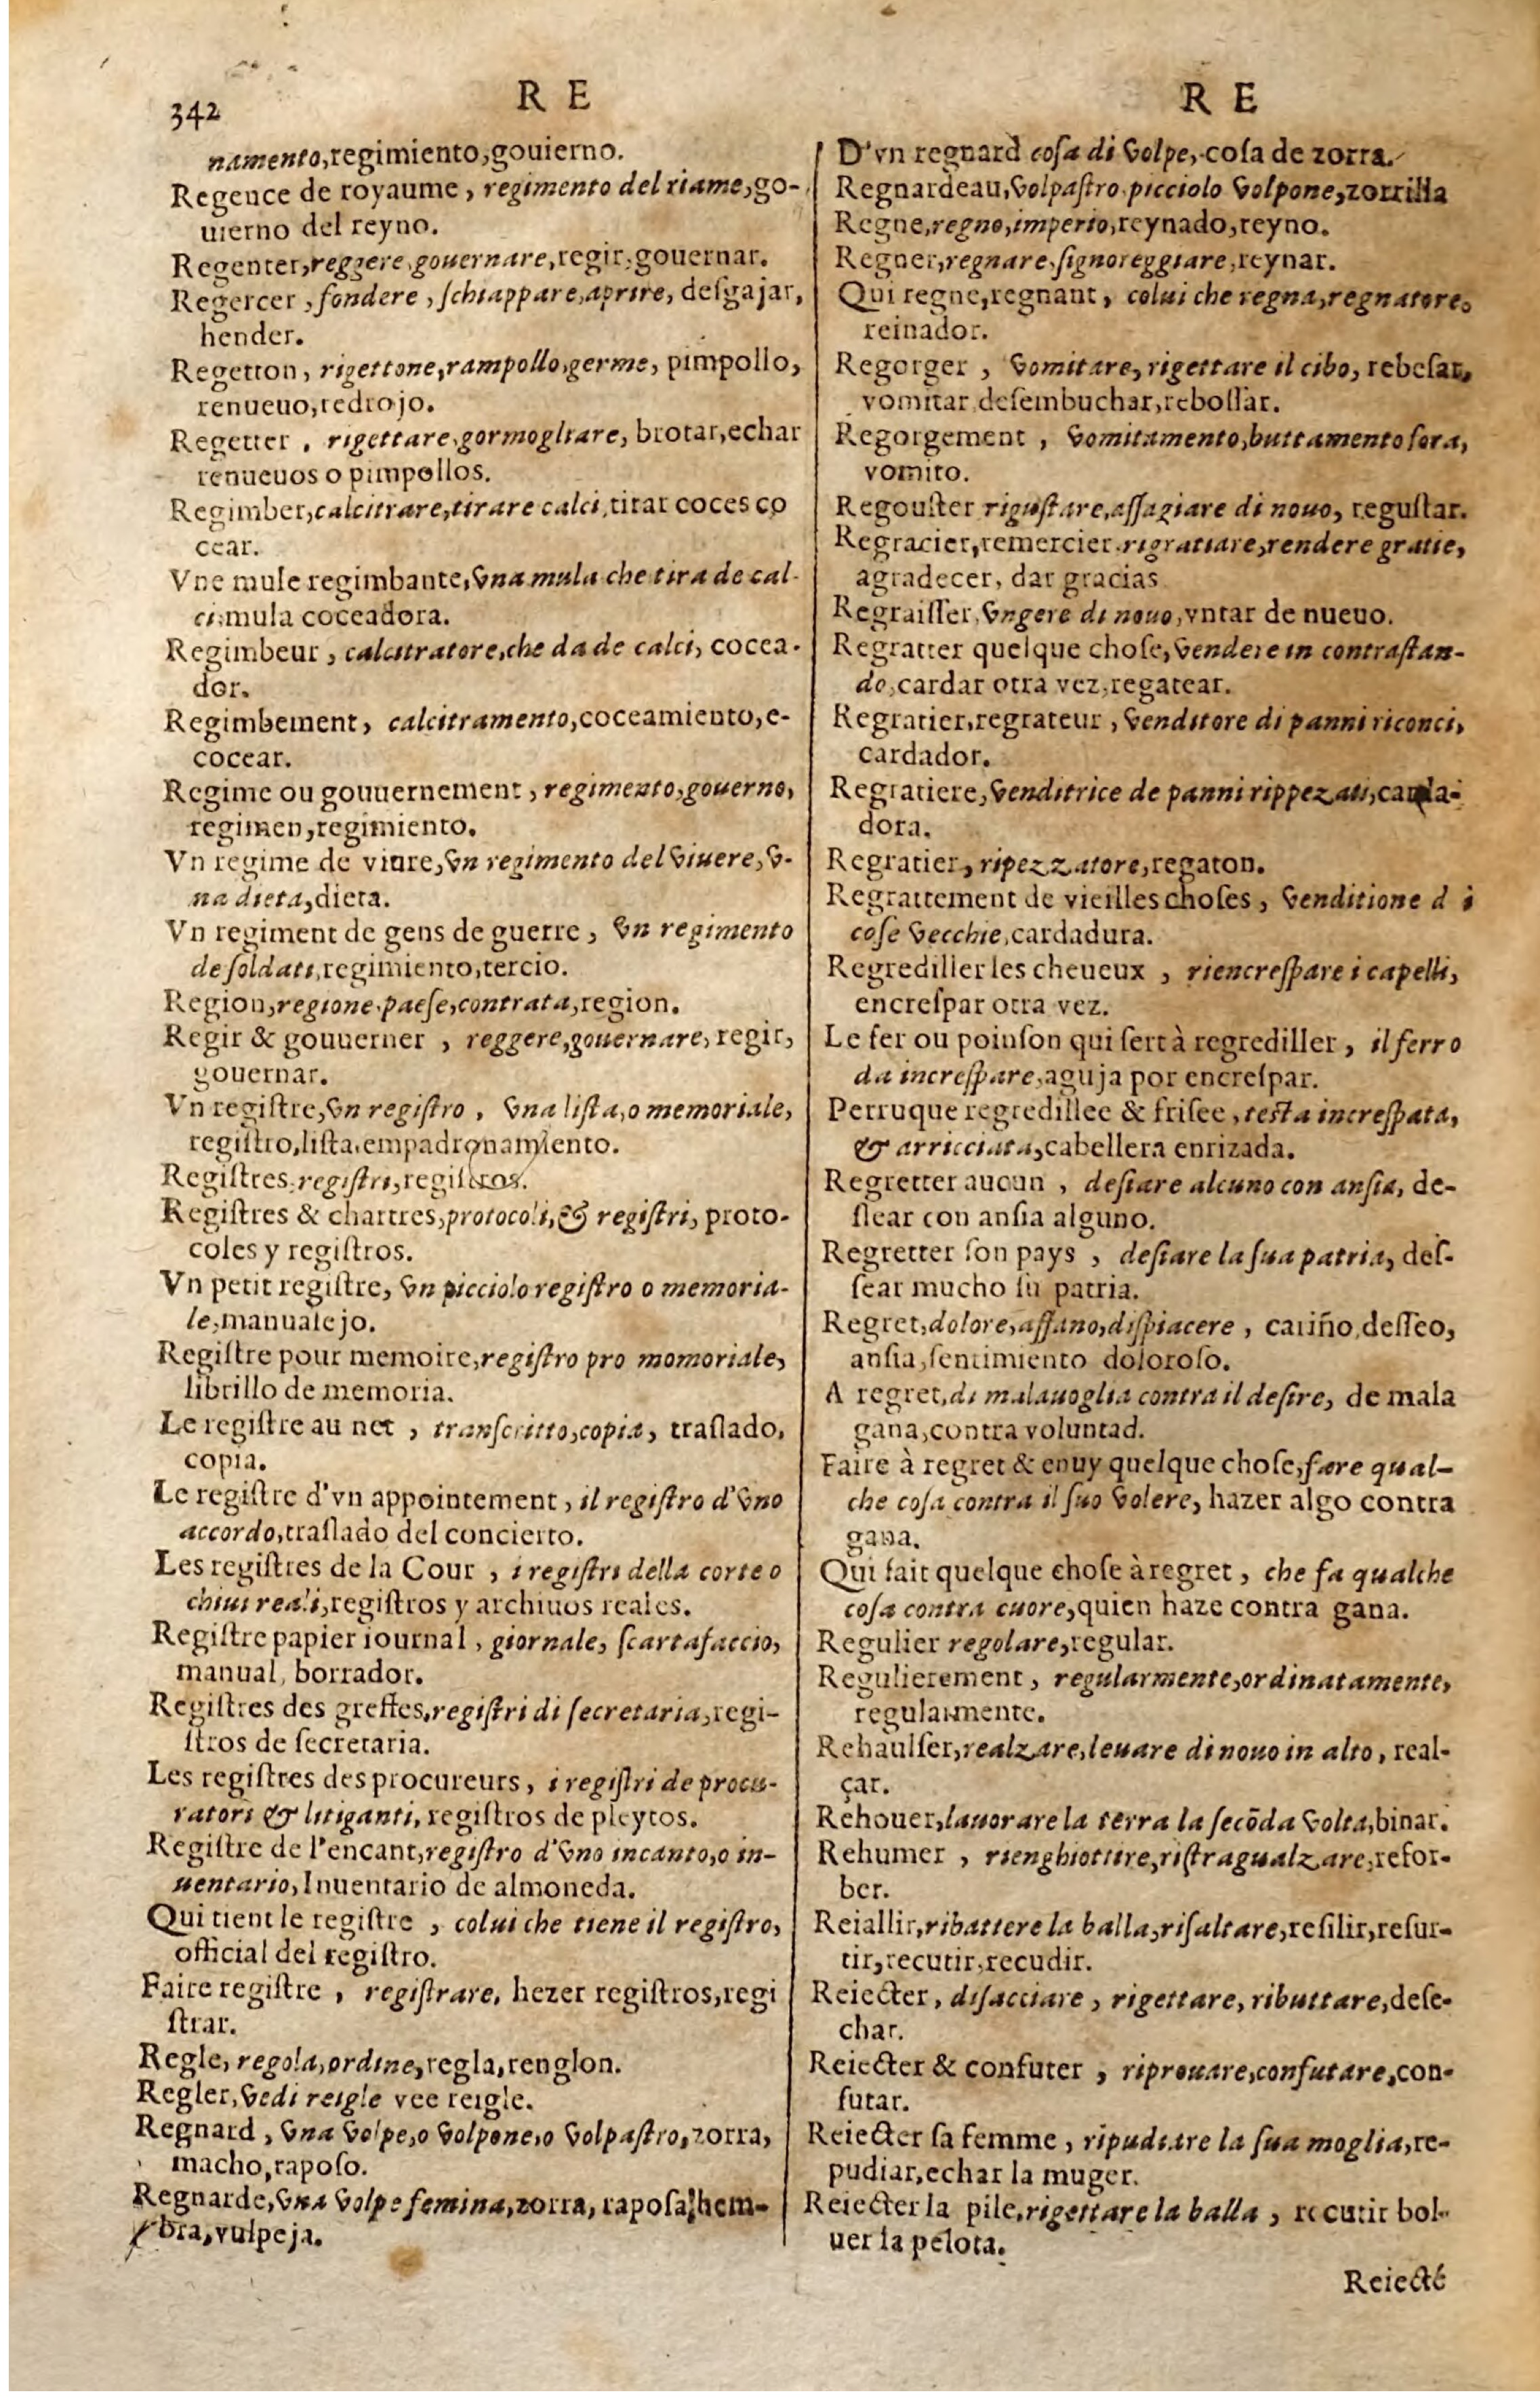 342
R E
R E
namento,regimiento,gouierno.
Regence de royaume, regimento del riame,go-
uierno del reyno.
Regenter,reggere,gouernare,regir,gouernar.
Regercer ,fondere ,ſchiappare,aprire, deſgajar,
hender.
Regetton, rigettone,rampollo,germe, pimpollo,
renueuo,redrojo.
Regetter , rigettare,gormogliare, brotar,echar
renueuos o pimpollos.
Regimber,calcitrare,tirare calci,tirar coces co
cear.
Vne mule regimbante,vna mula che tira de cal-
ci,mula coceadora.
Regimbeur , calcitratore,che da de calci, cocea-
dor.
Regimbement, calcitramento,coceamiento,e-
cocear.
Regime ou gouuernement , regimento,gouerno,
regimen,regimiento.
Vn regime de viure,vn regimento del viuere,v-
na dieta,dieta.
Vn regiment de gens de guerre , vn regimento
de ſoldati,regimiento,tercio.
Region,regione,paeſe,contrata,region.
Regir & gouuerner , reggere,gouernare, regir,
gouernar.
Vn regiſtre,vn regiſtro , vna liſta,o memoriale,
regiſtro,liſta,empadronamiento.
Regiſtres,regiſtri,regiſtros.
Regiſtres & chartres,protocoli,& regiſtri, proto-
coles y regiſtros.
Vn petit regiſtre, vn picciolo regiſtro o memoria-
le,manualejo.
Regiſtre pour memoire,regiſtro pro momoriale,
librillo de memoria.
Le regiſtre au net , tranſcritto,copia, traſlado,
copia.
Le regiſtre d'vn appointement , il regiſtro d'vno
accordo,traſlado del concierto.
Les regiſtres de la Cour , i regiſtri della corte o
chiui reali,regiſtros y archiuos reales.
Regiſtre papier iournal , giornale, ſcartafaccio,
manual, borrador.
Regiſtres des greffes,regiſtri di ſecretaria,regi-
ſtros de ſecretaria.
Les regiſtres des procureurs , i regiſtri de procu-
ratori & litiganti, regiſtros de pleytos.
Regiſtre de l'encant,regiſtro d'vno incanto,o in-
uentario,Inuentario de almoneda.
Qui tient le regiſtre , colui che tiene il regiſtro,
official del regiſtro.
Faire regiſtre , regiſtrare, hezer regiſtros,regi
ſtrar.
Regle, regola,ordine,regla,renglon.
Regler,vedi reigle vee reigle.
Regnard , vna volpe,o volpone,o volpaſtro,zorra,
macho,rapoſo.
Regnarde,vna volpe femina,zorra, rapoſa,hem-
bra,vulpeja.
D'vn regnard coſa di volpe, coſa de zorra.
Regnardeau,volpaſtro,picciolo volpone,zorrilla
Regne,regno,imperio,reynado,reyno.
Regner,regnare,ſignoreggiare,reynar.
Qui regne,regnant , colui che regna,regnatore,
reinador.
Regorger , vomitare, rigettare il cibo, rebeſar,
vomitar deſembuchar,reboſſar.
Regorgement , vomitamento,buttamento fora,
vomito.
Regouſter riguſtare,aſſagiare di nouo, reguſtar.
Regracier,remercier,rigratiare,rendere gratie,
agradecer, dar gracias
Regraiſſer,vngere di nouo,vntar de nueuo.
Regratter quelque choſe,vendere in contraſtan-
do,cardar otra vez,regatear.
Regratier,regrateur , venditore di panni riconci,
cardador.
Regratiere,venditrice de panni rippezati,carda-
dora.
Regratier, ripezzatore,regaton.
Regrattement de vieilles choſes , venditione d i
coſe vecchie,cardadura.
Regrediller les cheueux , riencreſpare i capelli,
encreſpar otra vez.
Le fer ou poinſon qui ſert à regrediller , il ferro
da increſpare,aguja por encreſpar.
Perruque regredillee & friſee , teſta increſpata,
& arricciata,cabellera enrizada.
Regretter aucun , deſiare alcuno con anſia, de-
ſſear con anſia alguno.
Regretter ſon pays , deſiare la ſua patria, deſ-
ſear mucho ſu patria.
Regret,dolore,affano,diſpiacere , cariño,deſſeo,
anſia,ſentimiento doloroſo.
A regret,di malauoglia contra il deſire, de mala
gana,contra voluntad.
Faire à regret & enuy quelque choſe,fare qual-
che coſa contra il ſuo volere, hazer algo contra
gana.
Qui fait quelque choſe à regret , che fa qualche
coſa contra cuore,quien haze contra gana.
Regulier regolare,regular.
Regulierement , regularmente,ordinatamente,
regularmente.
Rehaulſer,realzare,leuare di nouo in alto, real-
çar.
Rehouer,lauorare la terra la ſecōda volta,binar.
Rehumer , rienghiottire,riſtragualzare,reſor-
ber.
Reiallir,ribattere la balla,riſaltare,reſilir,reſur-
tir,recutir,recudir.
Reiecter, diſacciare , rigettare, ributtare,deſe-
char.
Reiecter & confuter , riprouare,confutare,con-
futar.
Reiecter ſa femme , ripudiare la ſua moglia,re-
pudiar,echar la muger.
Reiecter la pile,rigettare la balla , recutir bol-
uer la pelota.
Reiecté